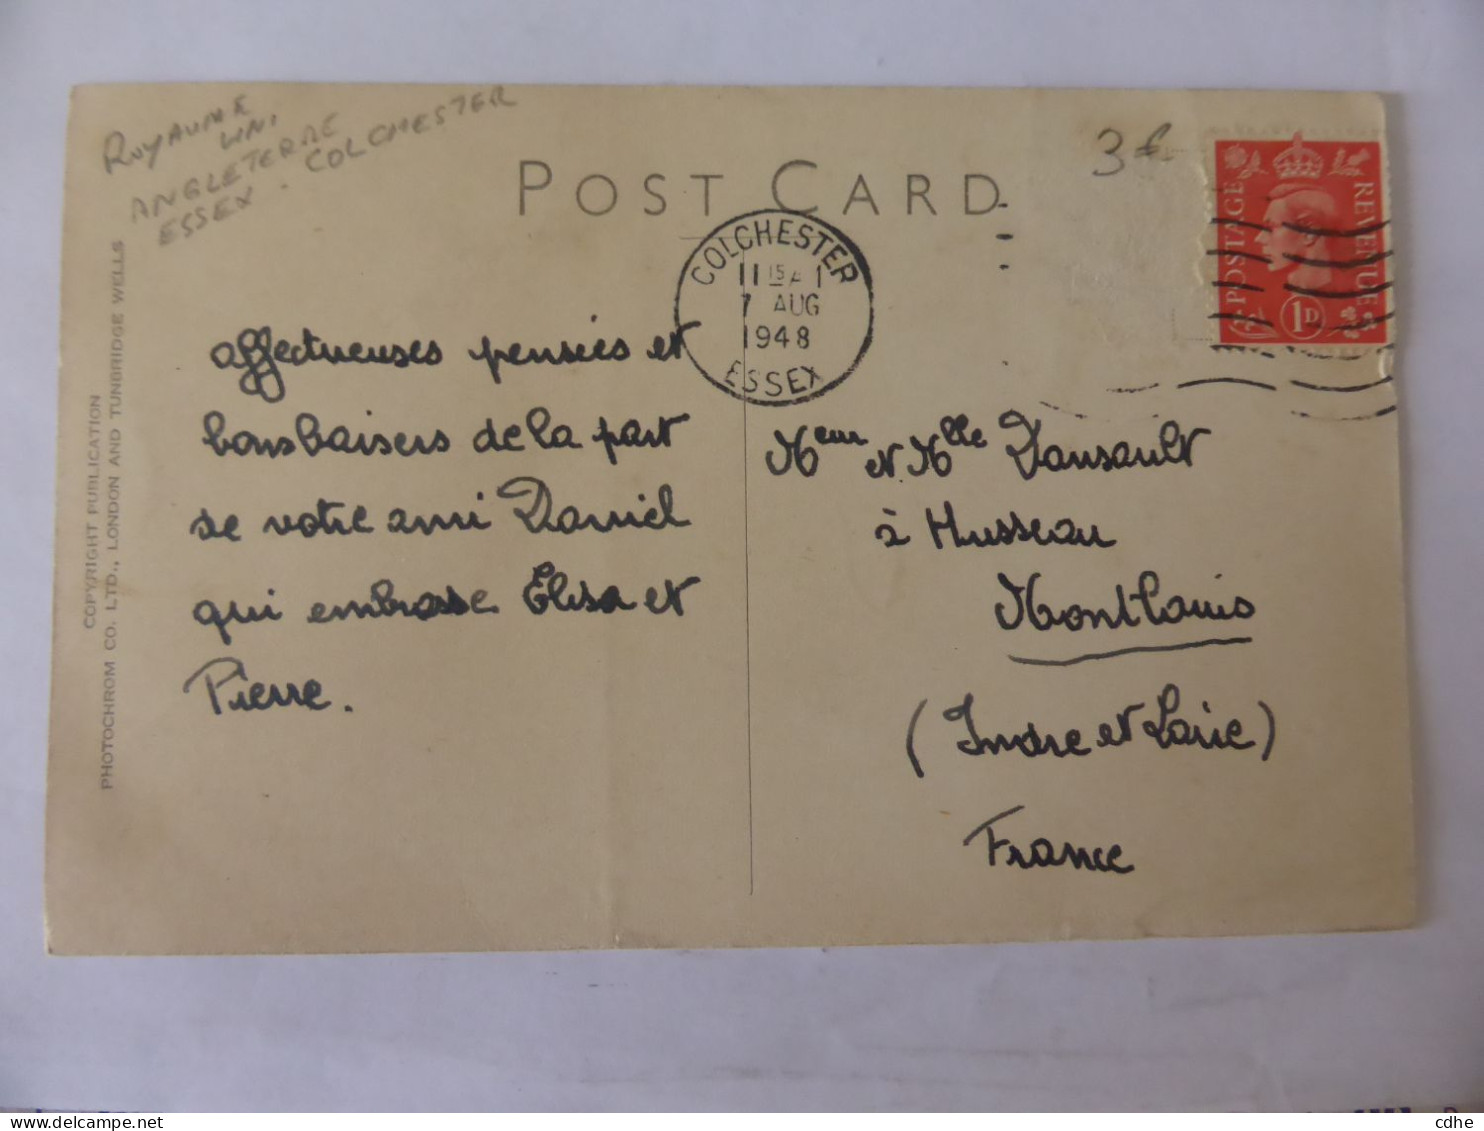 ROYAUME
UNI
ANGLETERRE
ESSEX - COLCHESTER
3 €
POST CARD
COLCHESTER
11 15 A
7 AUG
1948
ESSEX
POSTAGE
REVENUE
1D
COPYRIGHT PUBLICATION
PHOTOCHROM CO. LTD., LONDON AND TUNBRIDGE WELLS
affectueuses pensées et
bons baisers de la part
de votre ami Daniel
qui embrasse Elisa et
Pierre.
Meur et Mlle Dansault
à Husseau
Montlouis
(Indre et Loire)
France
cdhe